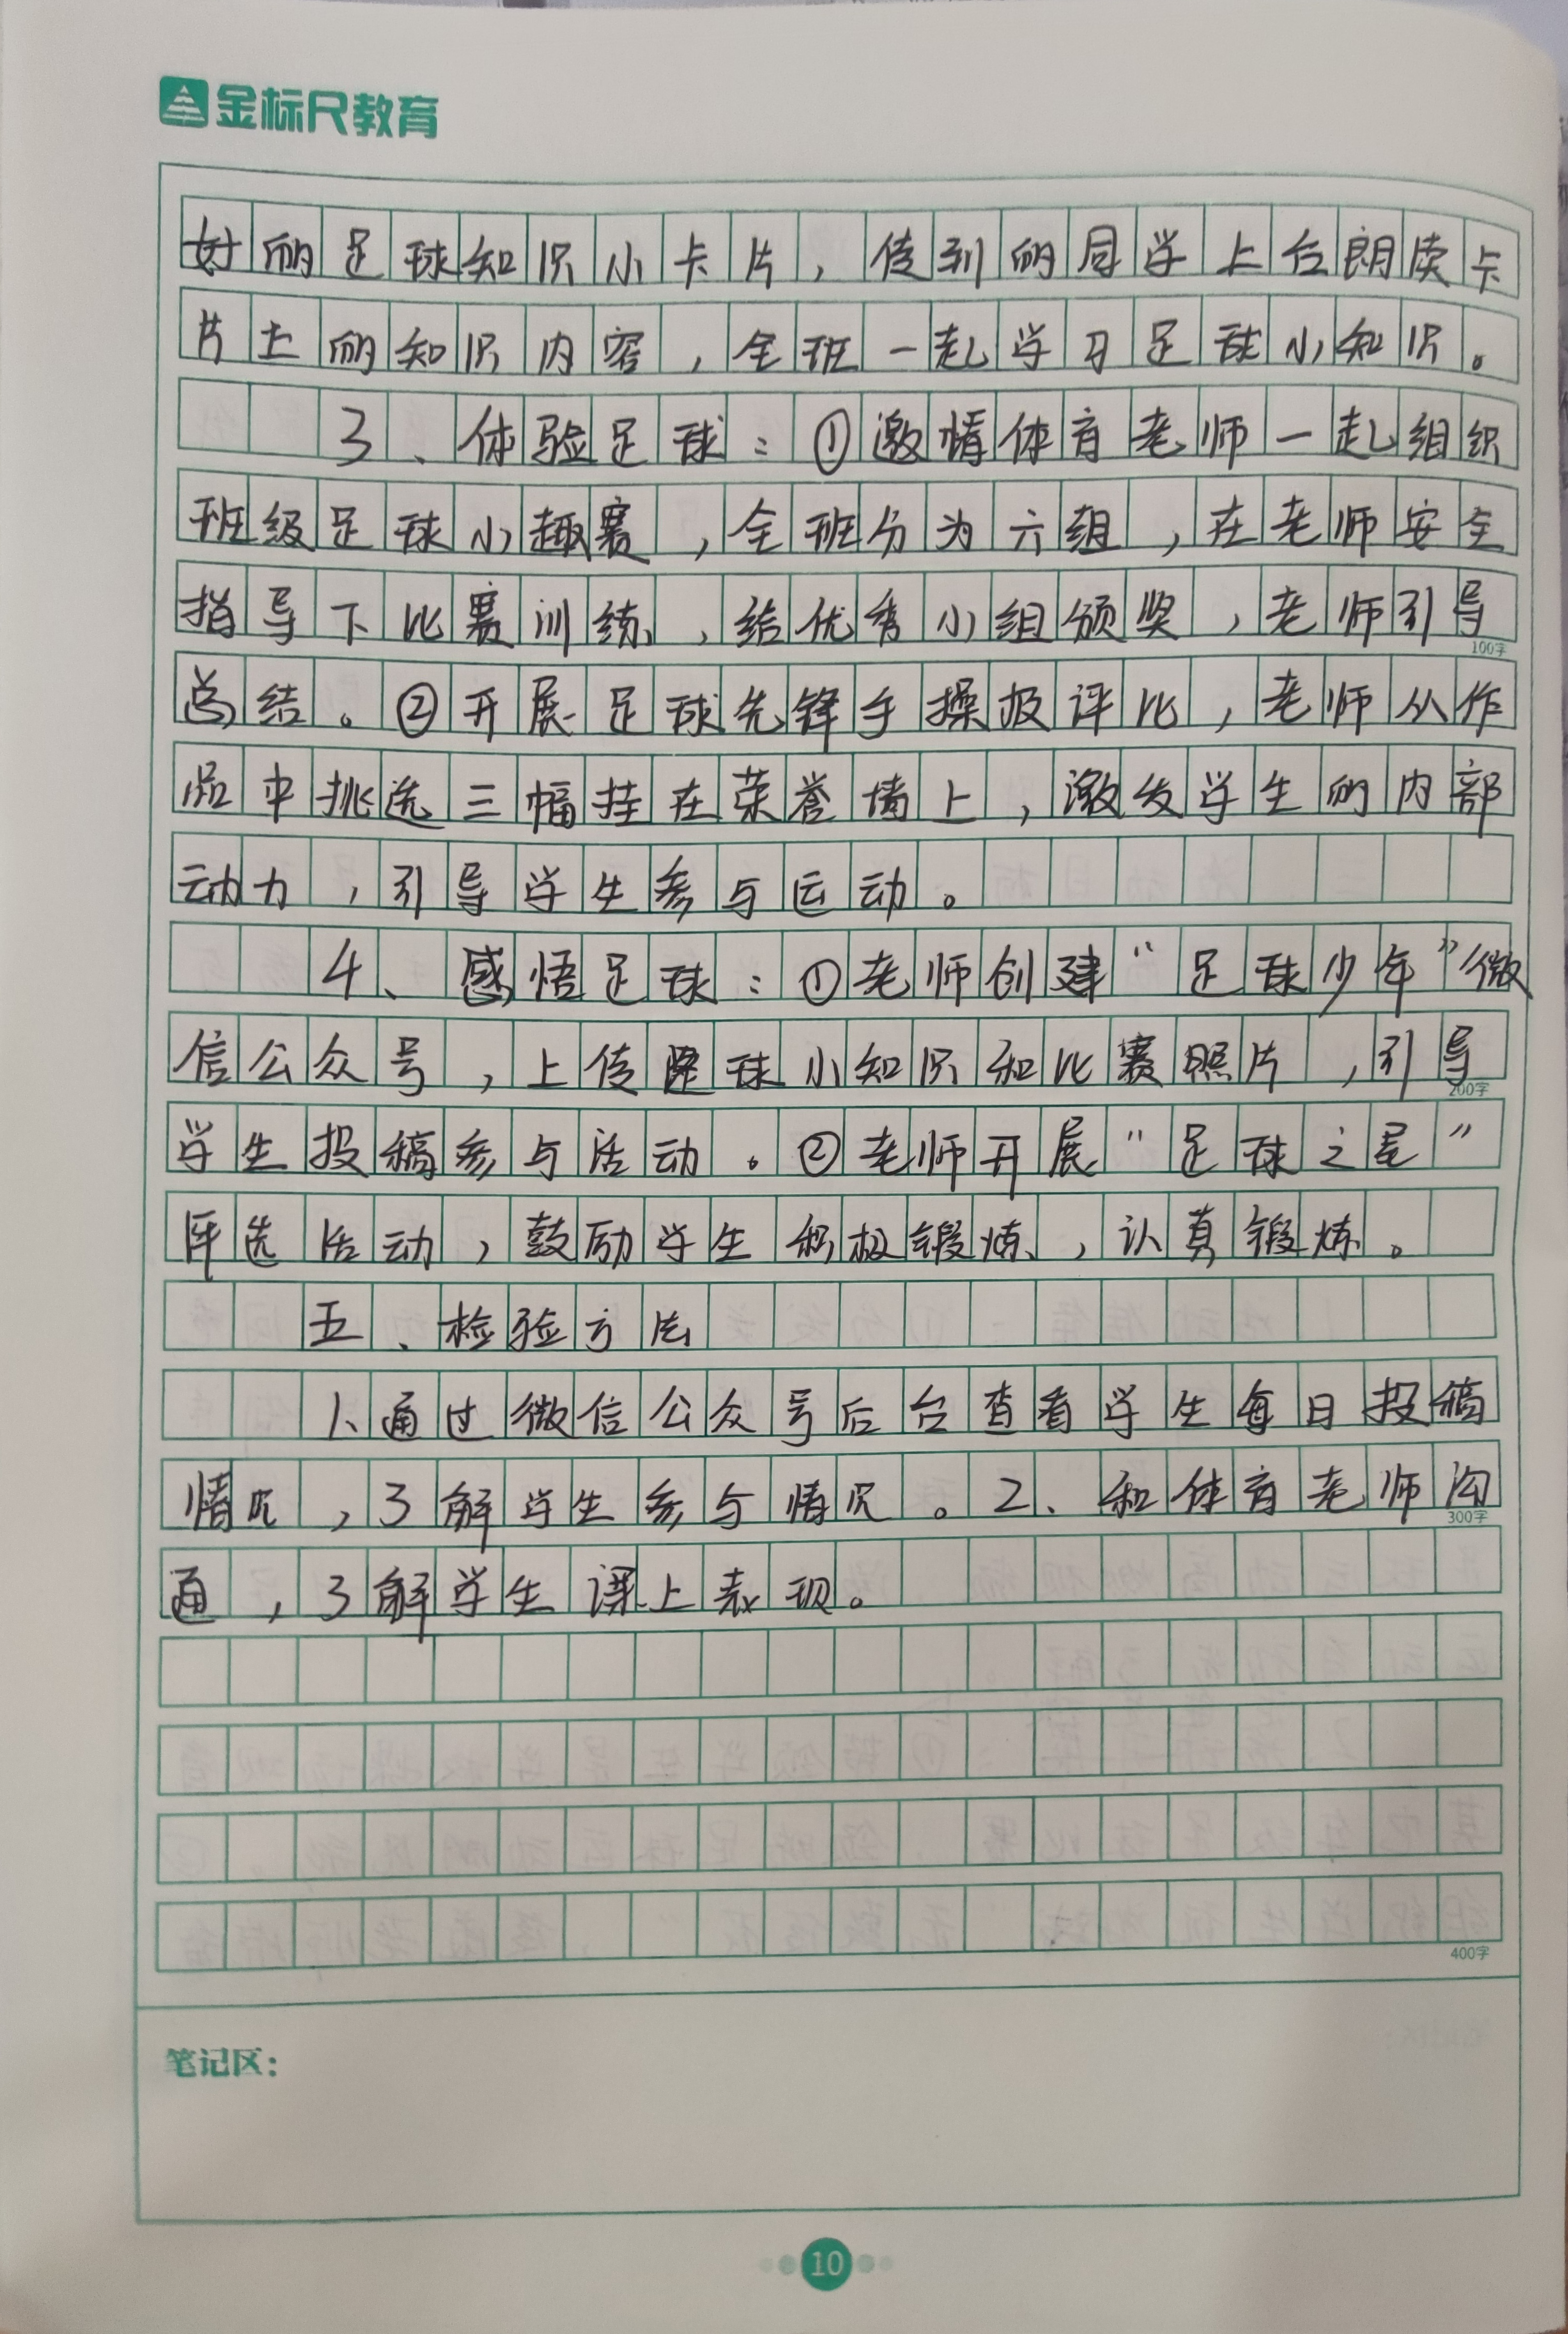 金标尺教育
好的足球知识小卡片，传到的同学上台朗读卡
片上的知识内容，全班一起学习足球小知识。
3、体验足球：①邀情体育老师一起组织
班级足球小趣赛，全班分为六组，在老师安全
指导下比赛训练，给优秀小组颁奖，老师引导
总结。②开展足球先锋手操报评比，老师从作
品中挑选三幅挂在荣誉墙上，激发学生的内部
动力，引导学生参与运动。
4、感悟足球：①老师创建“足球少年”微
信公众号，上传足球小知识和比赛照片，引导
学生投稿参与活动。②老师开展“足球之星”
评选活动，鼓励学生积极锻炼，认真锻炼。
五、检验方法
1、通过微信公众号后台查看学生每日投稿
情况，了解学生参与情况。2、和体育老师沟
通，了解学生课上表现。
100字
200字
300字
400字
笔记区：
10